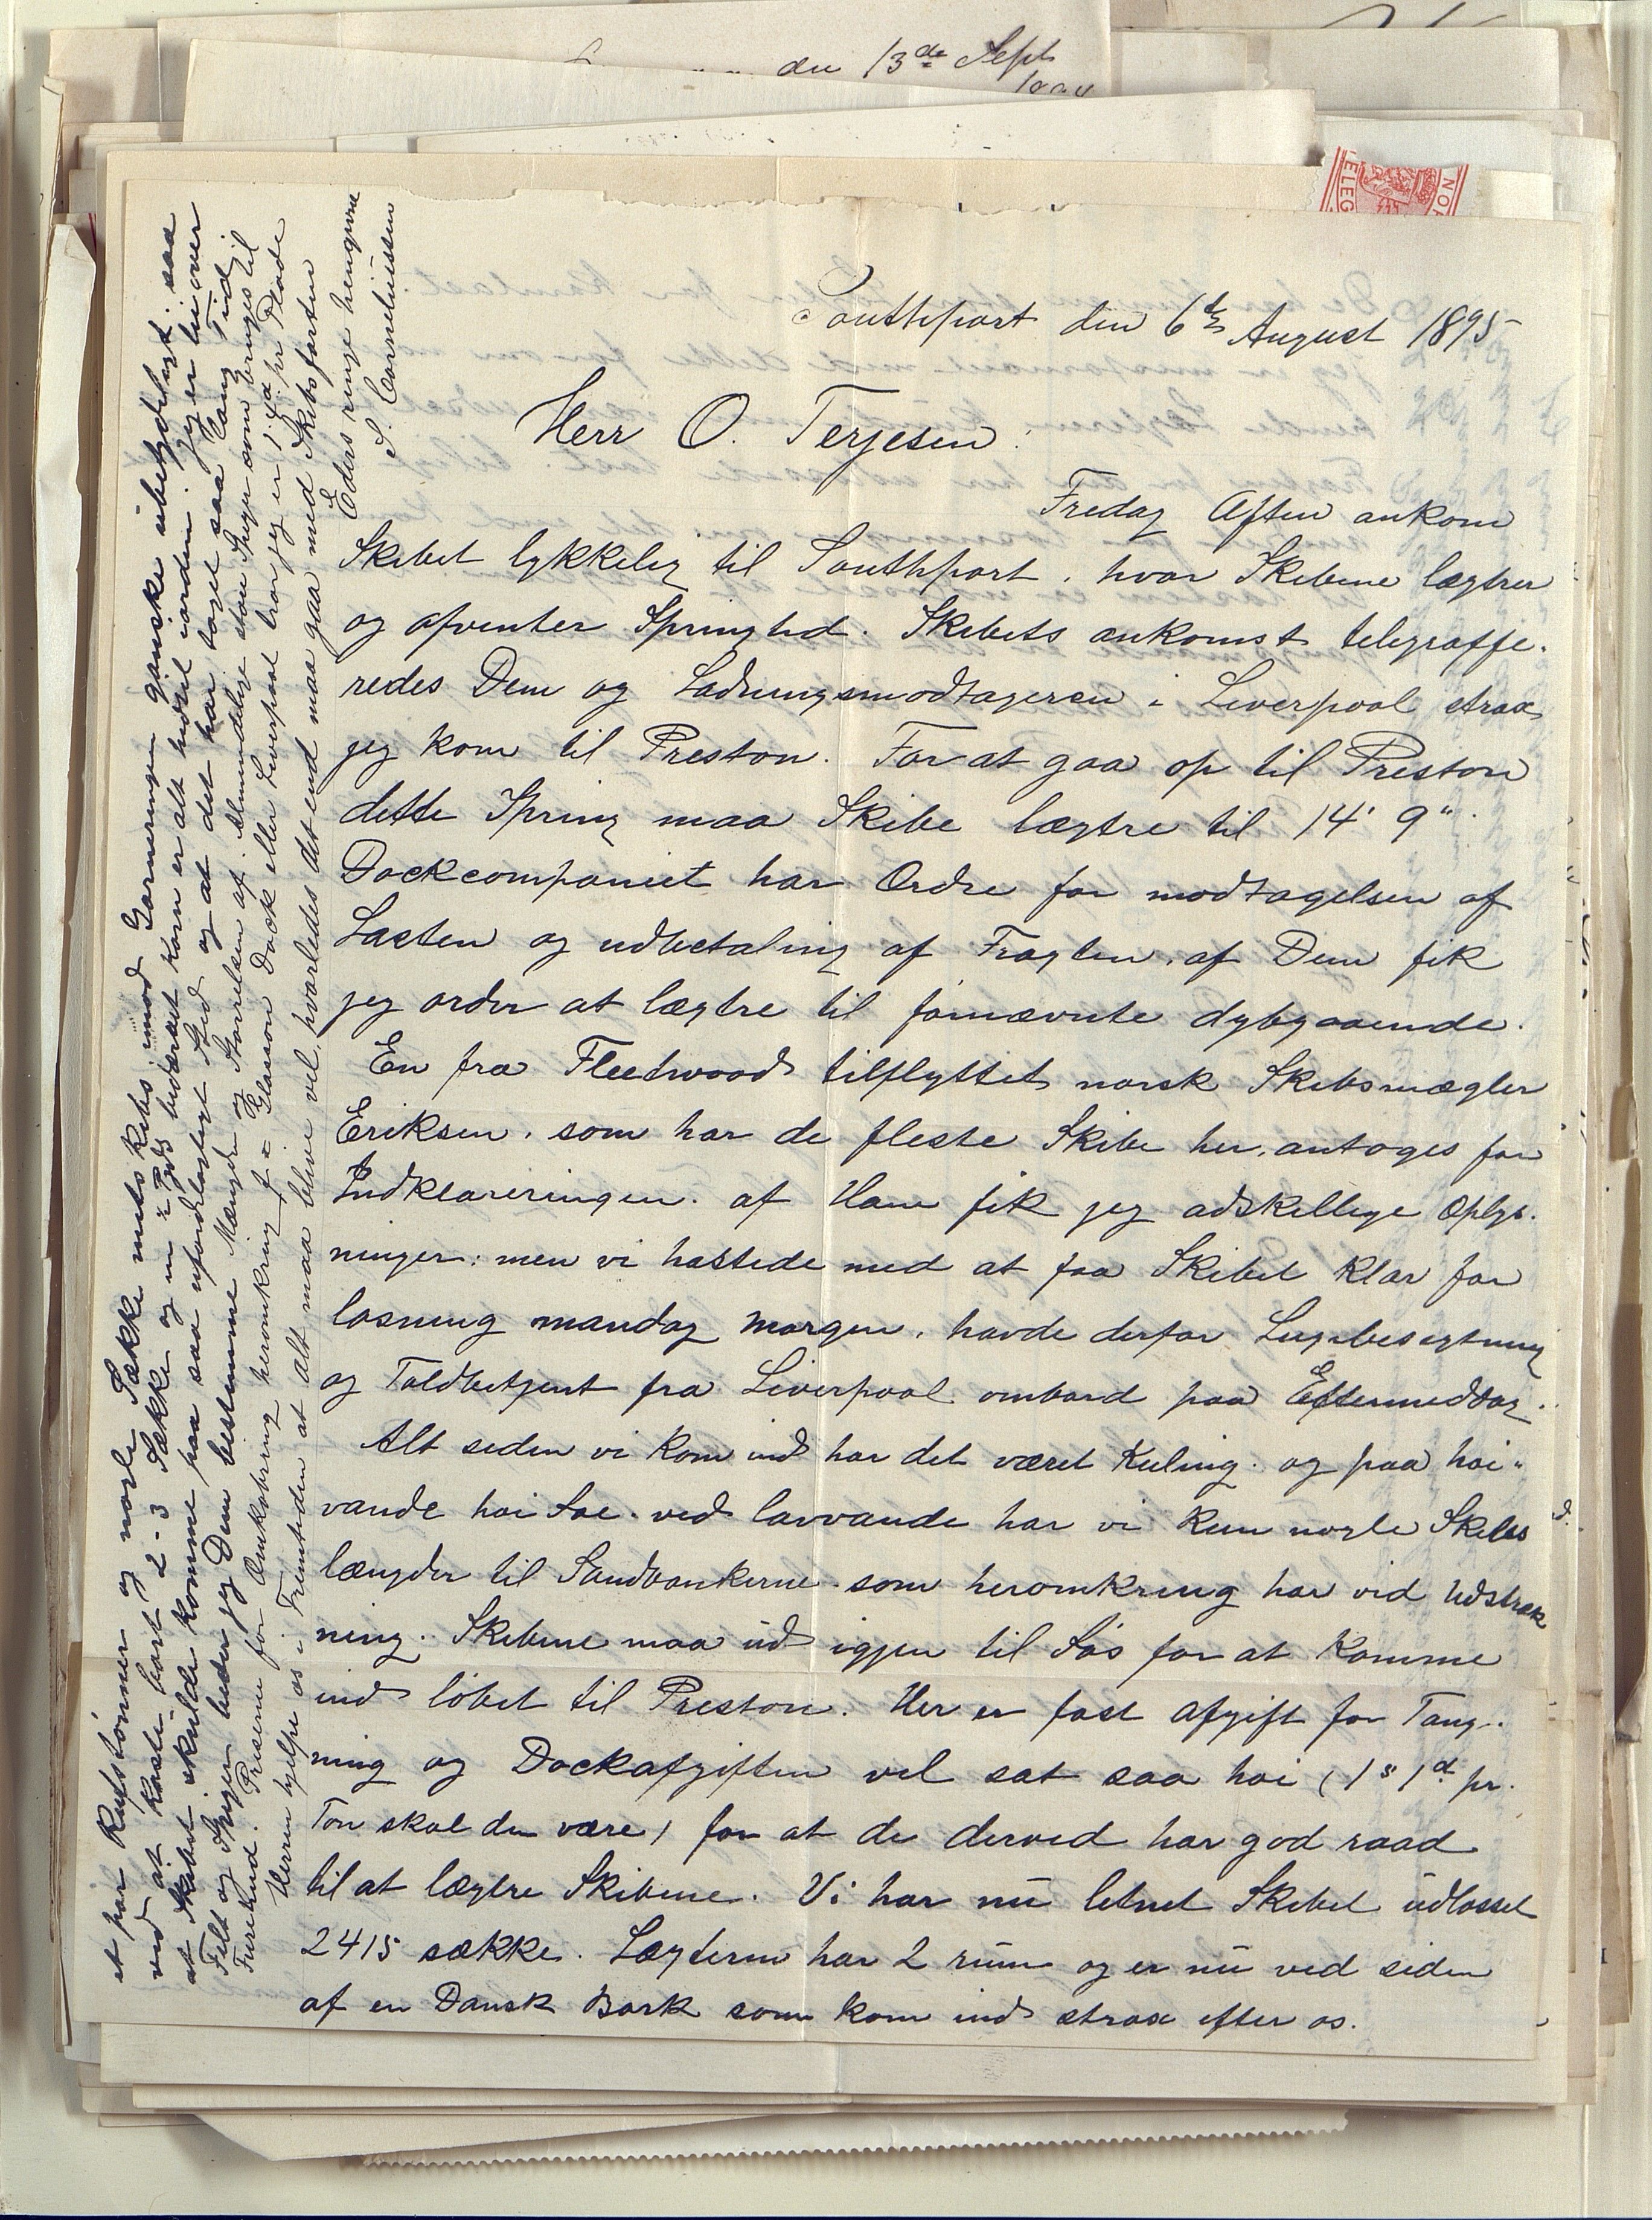 den 13de Sept
NOR
ELEG
Southport den 6te August 1895
Herr O. Terjesen.
Fredag Aften ankom
Skibet lykkelig til Southport, hvor Skibene lægtrer
og afventer Springtid. Skibets ankomst telegraffe-
redes Dem og Ladningsmodtageren i Liverpool strax
jeg kom til Preston. For at gaa op til Preston
dette Spring maa Skibe lægtre til 14' 9".
Dockcompaniet har Ordre for modtagelsen af
Lasten og udbetaling af Fragten, af Dem fik
jeg order at lægtre til førnævnte dybgaaende.
En fra Fleetwood tilflyttet norsk Skibsmægler
Eriksen, som har de fleste Skibe her, antoges for
Indklareringen. af Ham fik jeg adskellige Oplys-
ninger: men vi hastede med at faa Skibet klar for
losning mandag morgen, havde derfor Lugebesigtning
og Toldbetjent fra Liverpool ombord paa Eftermeddag.
Alt siden vi kom ind har det været Kuling. og paa høi-
vande høi Søe. ved lavvande har vi kun nogle Skibs
længder til Sandbankerne. som heromkring har vid Udstræk
ning. Skibene maa ud igjen til Søs for at komme
ind løbet til Preston. Her er fast afgift for Taug-
ning og Dockafgiften vel sat saa høi (1s 1d pr.
Ton skal den være) for at de derved har god raad
til at lægtre Skibene. Vi har nu letnet Skibet udlosset
2415 sække. Lægteren har 2 rum og er nu ved siden
af en Dansk Bark som kom ind strax efter os.
et par Rustønner og nogle Sække mids Skibs imod Garneringen ganske ubetydeligt. saa
ved at kaste bort 2-3 Sække og en i Feds bedærvet korn er alt udsal i orden. jeg er lei over
at Skibet skulde komme paa saa ufordelagtigt Sted og at det har taget saa lang Tid
Felt og Stager beder jeg Dem bestemme Mængde og Størrelsen af. almindelige store Stager som bringes til
Farsund. Priserne for Omkobring heromkring f = Glasson Dock eller Liverpool tror jeg er pr Plade
Herren hjelpe os i Fremtiden at alt maa blive vel, hvorledes det end maa gaa med Skibsfarten
Eders ringe hengivne
S. Corneliussen